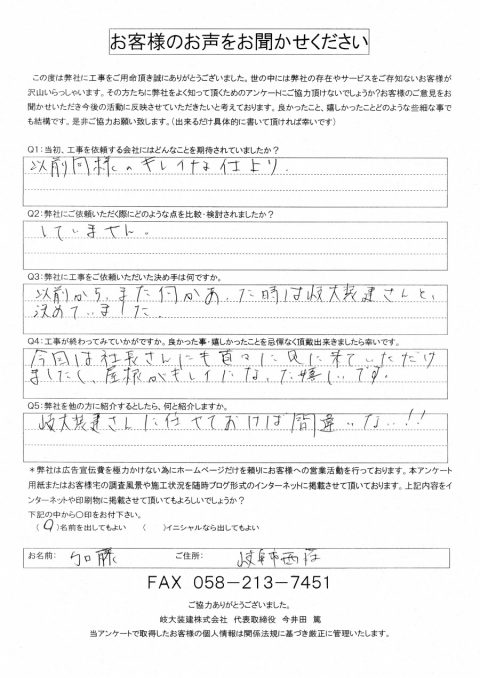 お客様のお声をお聞かせください
この度は弊社に工事をご用命頂き誠にありがとうございました。世の中には弊社の存在やサービスをご存知ないお客様が
沢山いらっしゃいます。その方たちに弊社をよく知って頂くためのアンケートにご協力頂けないでしょうか?お客様のご意見をお
聞かせいただき今後の活動に反映させていただきたいと考えております。良かったこと、嬉しかったことどのような些細な事で
も結構です。是非ご協力お願い致します。(出来るだけ具体的に書いて頂ければ幸いです)
Q1:当初、工事を依頼する会社にはどんなことを期待されていましたか?
以前同様のキレイな仕上り。
Q2:弊社にご依頼いただく際にどのような点を比較・検討されましたか?
していません。
Q3:弊社に工事をご依頼いただいた決め手は何ですか。
以前から、また何かあった時は岐大装建さんと、
決めていました。
Q4:工事が終わってみていかがですか。良かった事・嬉しかったことを忌憚なく頂戴出来きましたら幸いです。
今回は社長さんにも直々に見に来ていただけ
ましたし、屋根がキレイになった嬉しいです。
Q5:弊社を他の方に紹介するとしたら、何と紹介しますか。
岐大装建さんに任せておけば間違いない!!
*弊社は広告宣伝費を極力かけない為にホームページだけを頼りにお客様への営業活動を行っております。本アンケート
用紙またはお客様宅の調査風景や施工状況を随時ブログ形式のインターネットに掲載させて頂いております。上記内容をイ
ンターネットや印刷物に掲載させて頂いてもよろしいでしょうか?
下記の中から〇印をお付下さい。
(〇)名前を出してもよい ( )イニシャルなら出してもよい
お名前: 加藤 ご住所: 岐阜市西荘
FAX 058-213-7451
ご協力ありがとうございました。
岐大装建株式会社 代表取締役 今井田 篤
当アンケートで取得したお客様の個人情報は関係法規に基づき厳正に管理いたします。